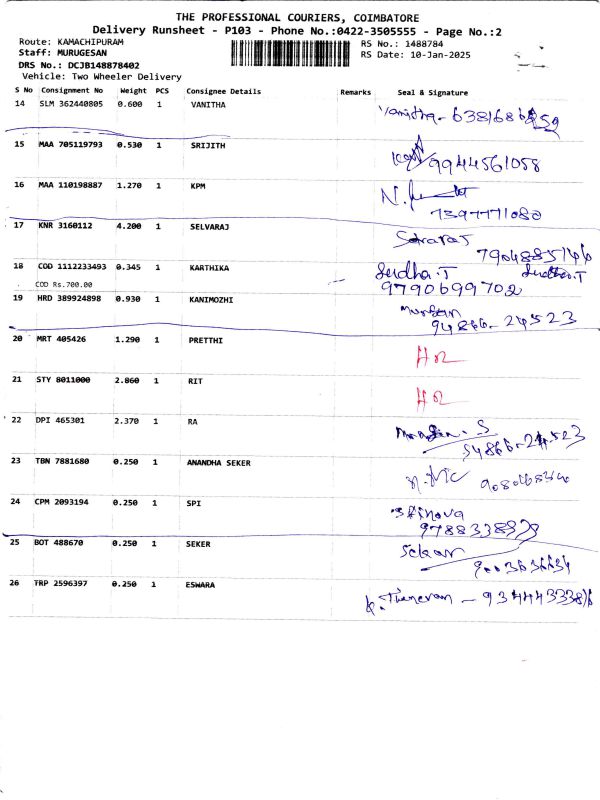 THE PROFESSIONAL COURIERS, COIMBATORE
Delivery Runsheet - P103 - Phone No.:0422-3505555 - Page No.:2
Route: KAMACHIPURAM RS No.: 1488784
Staff: MURUGESAN RS Date: 10-Jan-2025
DRS No.: DCJB148878402
Vehicle: Two Wheeler Delivery
S No Consignment No Weight PCS Consignee Details Remarks Seal & Signature
14 SLM 362440805 0.600 1 VANITHA Vanitha -
15 MAA 705119793 0.530 1 SRIJITH 9944561058
16 MAA 110198887 1.270 1 KPM 7397771080
17 KNR 3160112 4.200 1 SELVARAJ
7904885146
18 COD 1112233493 0.345 1 KARTHIKA Sudha.T Sudha.T
COD Rs.700.00 9790699702
19 HRD 389924898 0.930 1 KANIMOZHI
94866-24523
20 MRT 405426 1.290 1 PRETTHI
21 STY 8011000 2.860 1 RIT
22 DPI 465301 2.370 1 RA
94866-24523
23 TBN 7881680 0.250 1 ANANDHA SEKER
24 CPM 2093194 0.250 1 SPI
25 BOT 488670 0.250 1 SEKER Sekar
26 TRP 2596397 0.250 1 ESWARA